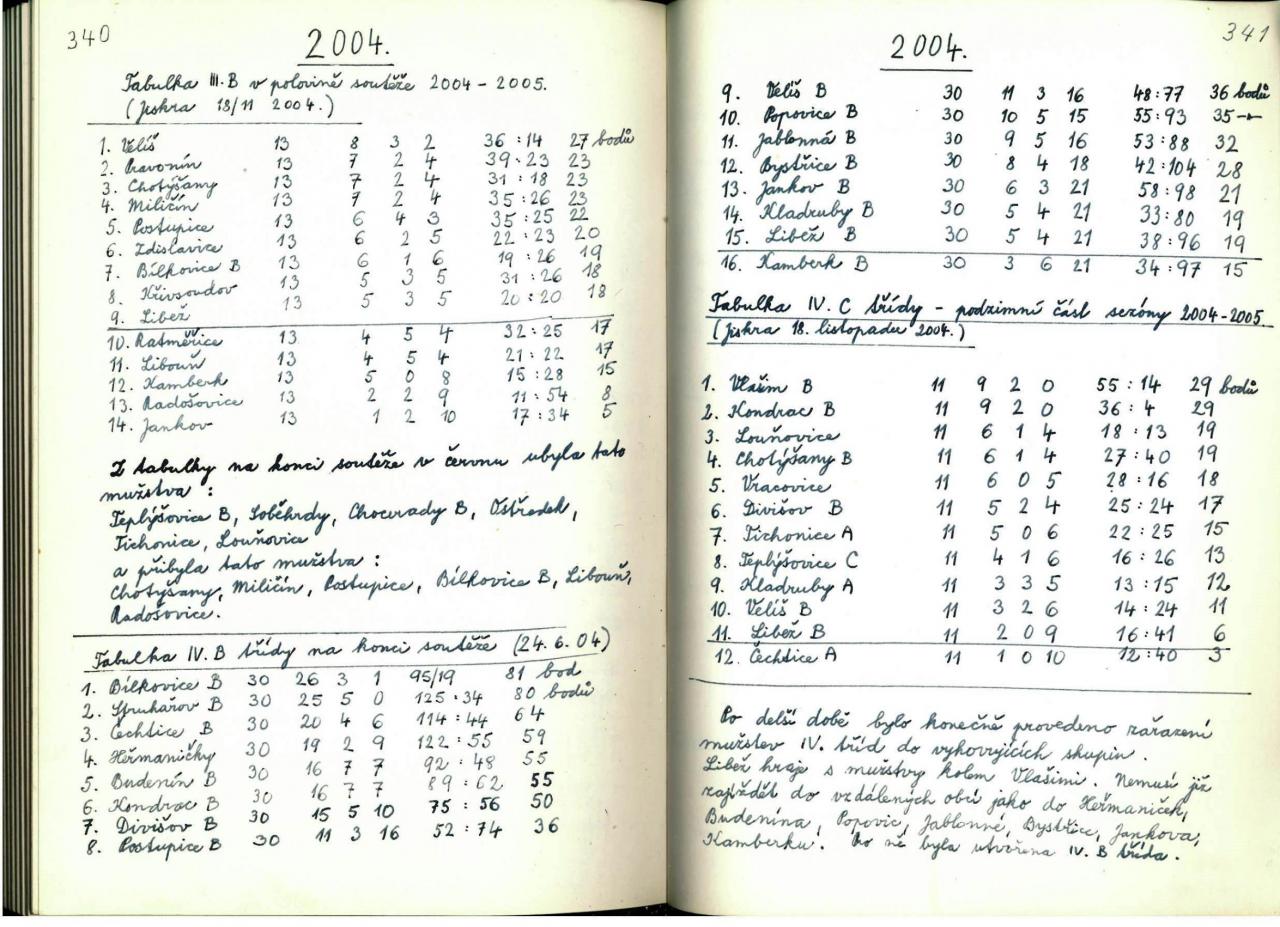 340
2004.
Tabulka III.B v polovině soutěže 2004-2005.
(Jiskra 18/11 2004.)
1. Veliš 13 8 3 2 36:14 27 bodů
2. Pravonín 13 7 2 4 39:23 23
3. Chotýšany 13 7 2 4 31:18 23
4. Miličín 13 7 2 4 35:26 23
5. Postupice 13 6 4 3 35:25 22
6. Zdislavice 13 6 2 5 22:23 20
7. Bílkovice B 13 6 1 6 19:26 19
8. Křivsoudov 13 5 3 5 31:26 18
9. Libež 13 5 3 5 20:20 18
10. Ratměřice 13 4 5 4 32:25 17
11. Libouň 13 4 5 4 21:22 17
12. Kamberk 13 5 0 8 15:28 15
13. Radošovice 13 2 2 9 11:54 8
14. Jankov 13 1 2 10 17:34 5
Z tabulky na konci soutěže v červnu ubyla tato
mužstva :
Teplýšovice B, Soběhrdy, Chocerady B, Ostředek,
Tichonice, Louňovice
a přibyla tato mužstva :
Chotýšany, Miličín, Postupice, Bílkovice B, Libouň,
Radošovice.
Tabulka IV.B třídy na konci soutěže (24.6.04)
1. Bílkovice B 30 26 3 1 95/19 81 bod
2. Struhařov B 30 25 5 0 125:34 80 bodů
3. Čechtice B 30 20 4 6 114:44 64
4. Heřmaničky 30 19 2 9 122:55 59
5. Budenín B 30 16 7 7 92:48 55
6. Kondrac B 30 16 7 7 89:62 55
7. Divišov B 30 15 5 10 75:56 50
8. Postupice B 30 11 3 16 52:74 36
341
2004.
9. Veliš B 30 11 3 16 48:77 36 bodů
10. Popovice B 30 10 5 15 55:93 35 -"-
11. Jablonná B 30 9 5 16 53:88 32
12. Bystřice B 30 8 4 18 42:104 28
13. Jankov B 30 6 3 21 58:98 21
14. Kladruby B 30 5 4 21 33:80 19
15. Libež B 30 5 4 21 38:96 19
16. Kamberk B 30 3 6 21 34:97 15
Tabulka IV.C třídy - podzimní část sezóny 2004-2005
(Jiskra 18. listopadu 2004.)
1. Vlašim B 11 9 2 0 55:14 29 bodů
2. Kondrac B 11 9 2 0 36:4 29
3. Louňovice 11 6 1 4 18:13 19
4. Chotýšany B 11 6 1 4 27:40 19
5. Vracovice 11 6 0 5 28:16 18
6. Divišov B 11 5 2 4 25:24 17
7. Tichonice A 11 5 0 6 22:25 15
8. Teplýšovice C 11 4 1 6 16:26 13
9. Kladruby A 11 3 3 5 13:15 12
10. Veliš B 11 3 2 6 14:24 11
11. Libež B 11 2 0 9 16:41 6
12. Čechtice A 11 1 0 10 12:40 3
Po delší době bylo konečně provedeno zařazení
mužstev IV. tříd do vyhovujících skupin.
Libež hraje s mužstvy kolem Vlašimi. Nemusí již
zajíždět do vzdálených obcí jako do Heřmaniček,
Budenína, Popovic, Jablonné, Bystřice, Jankova,
Kamberku. Po ně byla utvořena IV.B třída.